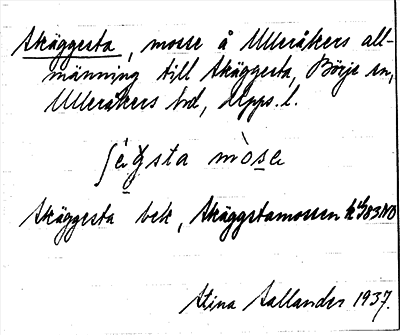 Skäggesta, mosse å Ulleråkers all-
männing till Skäggesta, Börje sn,
Ulleråkers hd, Upps. l.
mòse
Skäggesta bek, Skäggstamossen
Stina Sallander 1937.